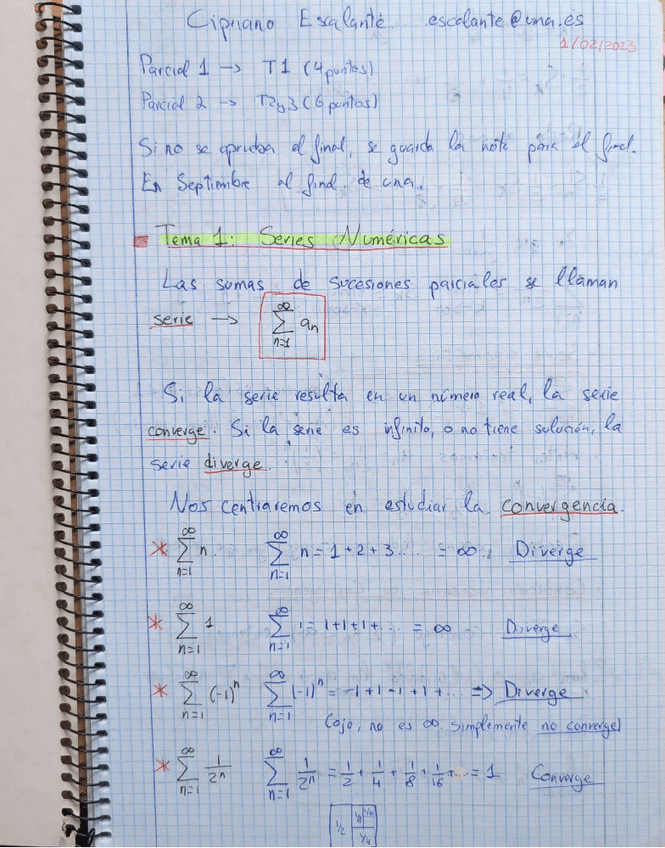 Cipriano Escalante .escalante@uma.es
1/02/2023
Parcial 1 -> T1 (4 puntos)
Parcial 2 -> T2y3 (6 puntos)
Si no se aprueba al final, se guarda la nota para el final.
En Septiembre al final de una.
Tema 1: Series Numéricas
Las sumas de sucesiones parciales se llaman
serie -> ∞ Σ n=1 an
Si la serie resulta en un número real, la serie
converge. Si la serie es infinito, o no tiene solución, la
serie diverge.
Nos centraremos en estudiar la convergencia.
* ∞ Σ n=1 n. ∞ Σ n=1 n = 1+2+3.... = ∞ Diverge
* ∞ Σ n=1 1 ∞ Σ n=1 1 = 1+1+1+... = ∞ Diverge
* ∞ Σ n=1 (-1)^n ∞ Σ n=1 (-1)^n = -1+1-1+1+... => Diverge.
(ojo, no es ∞ simplemente no converge)
* ∞ Σ n=1 1/2^n ∞ Σ n=1 1/2^n = 1/2 + 1/4 + 1/8 + 1/16 + ... = 1 Converge
1/2 1/8 1/16
1/4